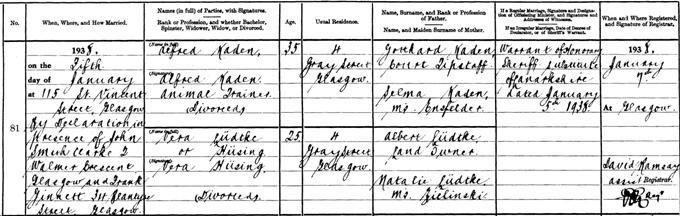 No.
When, Where, and How Married.
Name (in full) of Parties, with Signatures.
Rank or Profession, and whether Bachelor,
Spinster, Widower, Widow, or Divorced.
Age.
Usual Residence.
Name, Surname, and Rank or Profession
of Father.
Name, and Maiden Surname of Mother.
If a Regular Marriage, Signature and Designation
of Officiating Minister, and Signatures and
Addresses of Witnesses.
If an Irregular Marriage, Date of Decree of
Declarator, or of Sheriff's Warrant.
When and Where Registered,
and Signature of Registrar.
81
1938.
on the
Fifth
day of
January
at 115 St. Vincent
Street, Glasgow
By Declaration in
Presence of John
Smith Clarke 2
Walmer Crescent
Glasgow and Frank
Ginnett 34
Street, Glasgow.
(Name in full)
Alfred Kaden,
(Signature)
Alfred Kaden.
Animal Trainer
(Divorced)
35
4
Gray Street
Glasgow.
Kaden
Court
Selma Kaden,
ms. Ensfelder.
Warrant of Honorary
Sheriff Substitute
of Lanarkshire
dated January
5th 1938.
1938.
January
7th
At Glasgow.
(Name in full)
Vera Lüdtke
or Hüsing.
(Signature)
Vera Hüsing.
(Divorced)
25
4
Gray Street
Glasgow.
Albert Lüdtke.
Land Owner.
Natalie Lüdtke
ms. Zielinski.
David Ramsay
Assist Registrar.